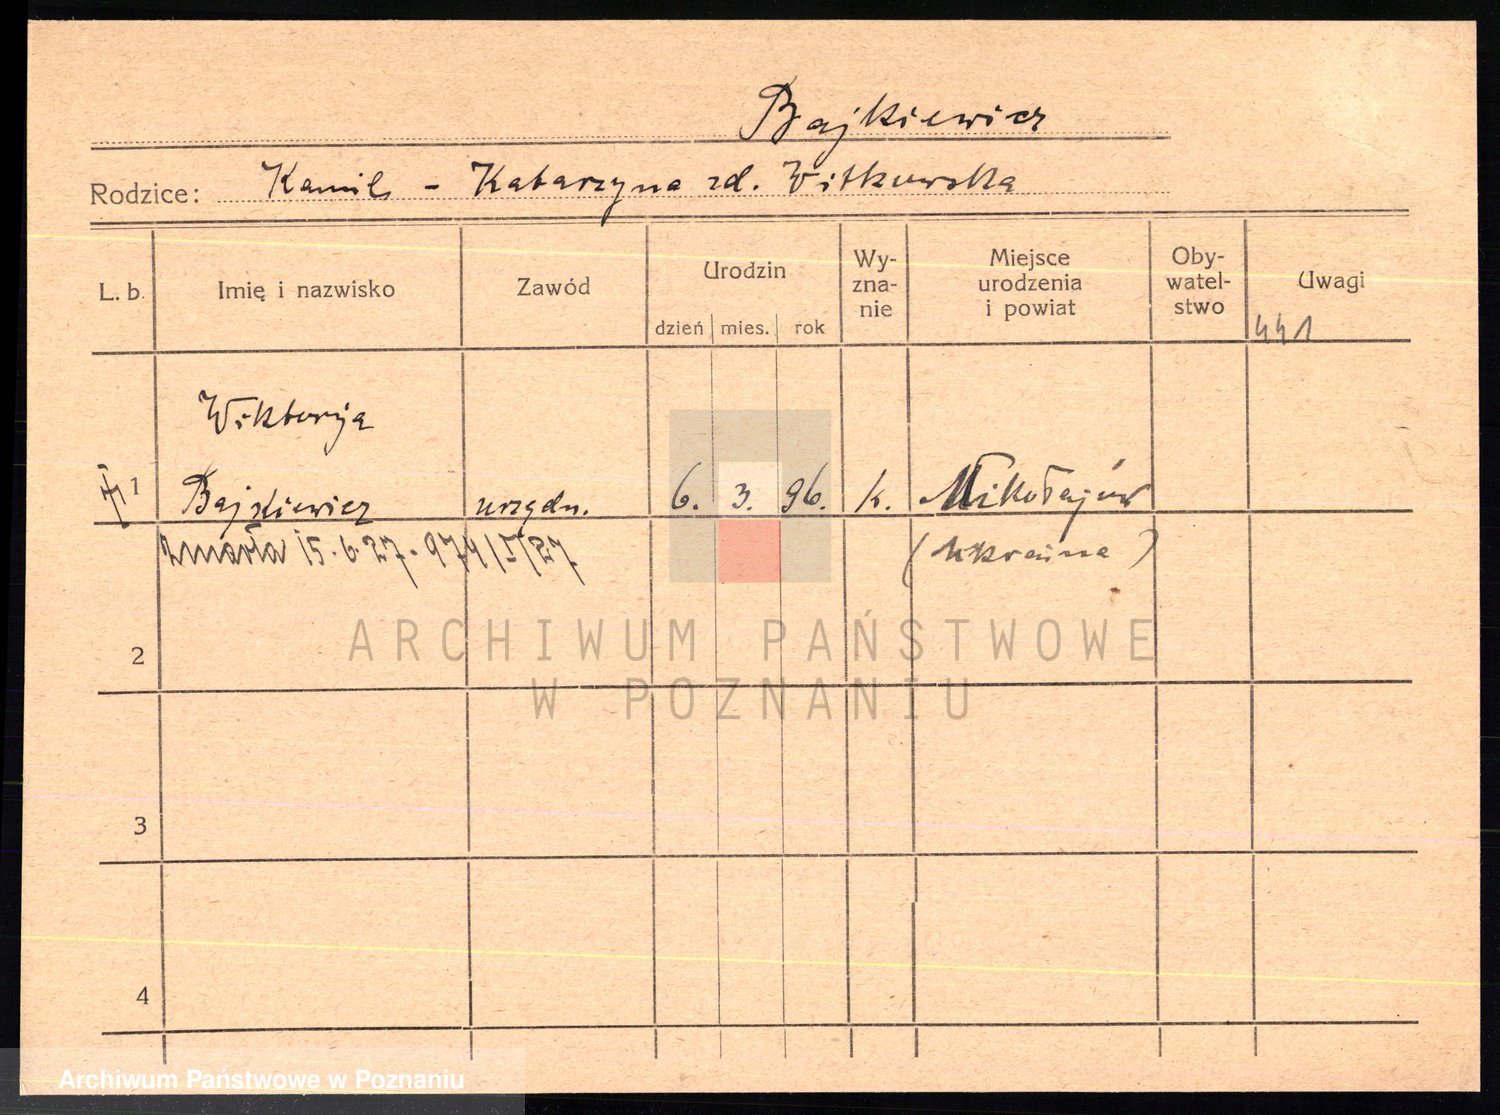 Bajkiewicz
Rodzice: Kamil - Katarzyna zd. Witkowska
L. b. Imię i nazwisko Zawód Urodzin Wy-zna-nie Miejsce urodzenia i powiat Oby-watel-stwo Uwagi
dzień mies. rok
441
Wiktorija
1 Bajkiewicz urzędn. 6. 3. 96. k. Mikołajów
zmarła 15.6.27. 974/I/27 (Ukraina)
2
3
4
ARCHIWUM PAŃSTWOWE
W POZNANIU
Archiwum Państwowe w Poznaniu